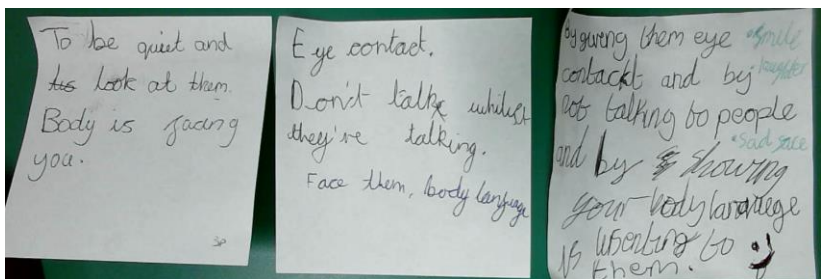 To be quiet and
look at them.
Body is facing
you.
Eye contact.
Don't talk whilst
they're talking.
Face them, body language
By giving them eye
contackt and by
not talking to people
and by showing
your body language
is liserting to
them.
•Smile
laughter
•Sad face